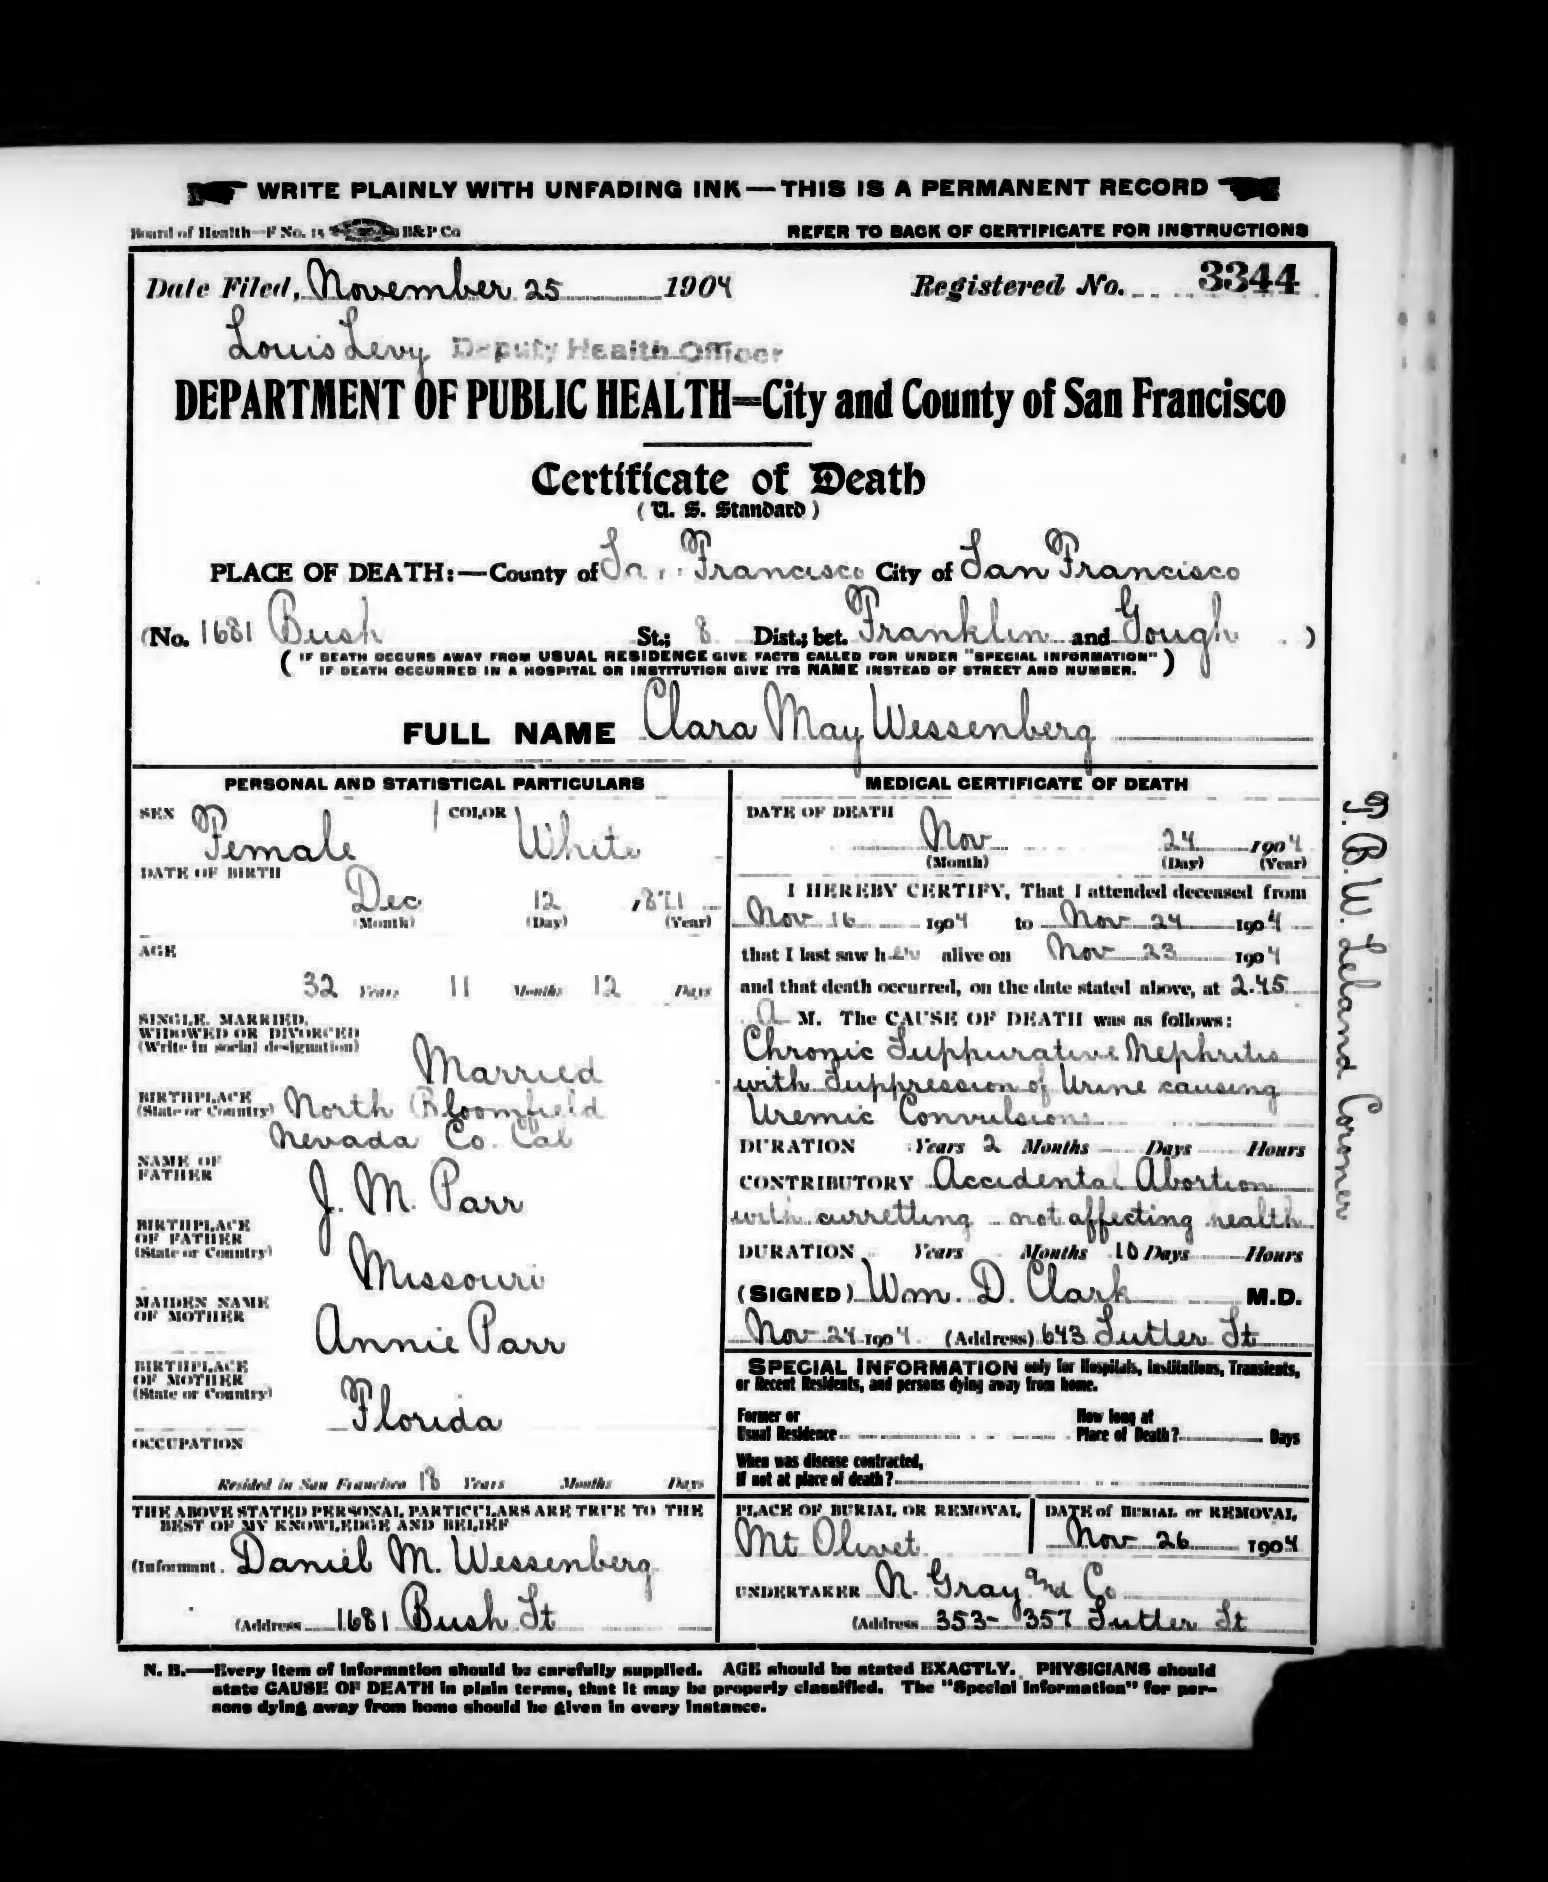 WRITE PLAINLY WITH UNFADING INK—THIS IS A PERMANENT RECORD
Board of Health—F No. 15 B&P Co REFER TO BACK OF CERTIFICATE FOR INSTRUCTIONS
Date Filed, November 25 1904 Registered No. 3344
Louis Levy Deputy Health Officer
DEPARTMENT OF PUBLIC HEALTH=City and County of San Francisco
Certificate of Death
( U. S. Standard )
PLACE OF DEATH:—County of San Francisco City of San Francisco
(No. 1681 Bush St.; 8 Dist.; bet. Franklin and Gough )
( IF DEATH OCCURS AWAY FROM USUAL RESIDENCE GIVE FACTS CALLED FOR UNDER "SPECIAL INFORMATION" )
IF DEATH OCCURRED IN A HOSPITAL OR INSTITUTION GIVE ITS NAME INSTEAD OF STREET AND NUMBER.
FULL NAME Clara May Wessenberg
PERSONAL AND STATISTICAL PARTICULARS
SEX Female COLOR White
DATE OF BIRTH
Dec 12 1871
(Month) (Day) (Year)
AGE
32 Years 11 Months 12 Days
SINGLE, MARRIED,
WIDOWED OR DIVORCED
(Write in social designation)
Married
BIRTHPLACE
(State or Country) North Bloomfield
Nevada Co. Cal
NAME OF
FATHER
J. M. Parr
BIRTHPLACE
OF FATHER
(State or Country)
Missouri
MAIDEN NAME
OF MOTHER
Annie Parr
BIRTHPLACE
OF MOTHER
(State or Country)
Florida
OCCUPATION
Resided in San Francisco 18 Years Months Days
THE ABOVE STATED PERSONAL PARTICULARS ARE TRUE TO THE
BEST OF MY KNOWLEDGE AND BELIEF
(Informant. Daniel M. Wessenberg
(Address 1681 Bush St
MEDICAL CERTIFICATE OF DEATH
DATE OF DEATH
Nov 24 1904
(Month) (Day) (Year)
I HEREBY CERTIFY, That I attended deceased from
Nov 16 1904 to Nov 24 1904
that I last saw her alive on Nov 23 1904
and that death occurred, on the date stated above, at 2.45
A M. The CAUSE OF DEATH was as follows:
Chronic Suppurative Nephritis
with Suppression of Urine causing
Uremic Convulsions
DURATION Years 2 Months Days Hours
CONTRIBUTORY Accidental Abortion
with curretting not affecting health
DURATION Years Months 10 Days Hours
(SIGNED) Wm. D. Clark M.D.
Nov 24 1904 (Address) 643 Sutter St
SPECIAL INFORMATION only for Hospitals, Institutions, Transients,
or Recent Residents, and persons dying away from home.
Former or How long at
Usual Residence Place of Death? Days
When was disease contracted,
If not at place of death?
PLACE OF BURIAL OR REMOVAL, DATE of BURIAL or REMOVAL,
Mt Olivet Nov 26 1904
UNDERTAKER N. Gray and Co
(Address 353-357 Sutter St
N. B.—Every item of information should be carefully supplied. AGE should be stated EXACTLY. PHYSICIANS should
state CAUSE OF DEATH in plain terms, that it may be properly classified. The "Special Information" for per-
sons dying away from home should be given in every instance.
T. B. W. Leland Coroner